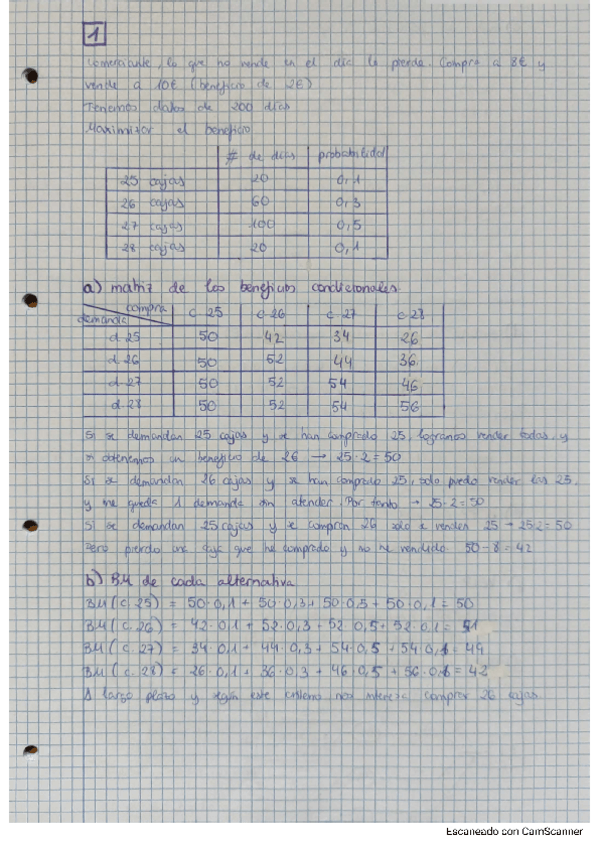 1
Comerciante, lo que no vende en el día lo pierde. Compra a 8€ y
vende a 10€ (beneficio de 2€)
Tenemos datos de 200 días
Maximizar el beneficio
# de días probabilidad
25 cajas 20 0,1
26 cajas 60 0,3
27 cajas 100 0,5
28 cajas 20 0,1
a) matriz de los beneficios condicionales.
compra
demanda c.25 c.26 c.27 c.28
d.25 50 42 34 26
d.26 50 52 44 36
d.27 50 52 54 46
d.28 50 52 54 56
Si se demandan 25 cajas y se han comprado 25, logramos vender todas, y
obtenemos un beneficio de 26 → 25·2=50
Si se demandan 26 cajas y se han comprado 25, solo puedo vender las 25,
y me queda 1 demanda sin atender. Por tanto → 25·2=50
Si se demandan 25 cajas y se compran 26 solo se venden 25 → 25·2=50
Pero pierdo una caja que he comprado y no he vendido. 50-8=42
b) BM de cada alternativa
BM (c.25) = 50·0,1 + 50·0,3 + 50·0,5 + 50·0,1 = 50
BM (c.26) = 42·0,1 + 52·0,3 + 52·0,5 + 52·0,1 = 51
BM (c.27) = 34·0,1 + 44·0,3 + 54·0,5 + 54·0,1 = 49
BM (c.28) = 26·0,1 + 36·0,3 + 46·0,5 + 56·0,1 = 42
A largo plazo y según este criterio nos interesa comprar 26 cajas
Escaneado con CamScanner